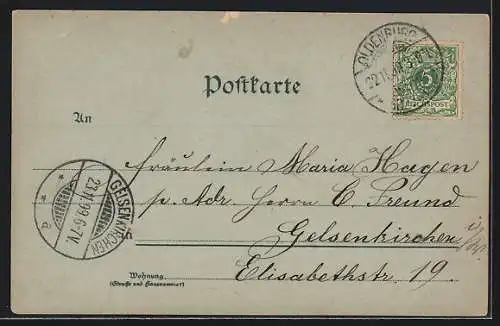 OLDENBURG
22.11.99.
5
REICHSPOST
Postkarte
An
Fräulein Maria Hagen
p. Adr. Herrn C. Freund
Gelsenkirchen
i/W.
Elisabethstr. 19
GELSENKIRCHEN
23.11.99.6-7V.
* *
a
Wohnung
(Straße und Hausnummer)